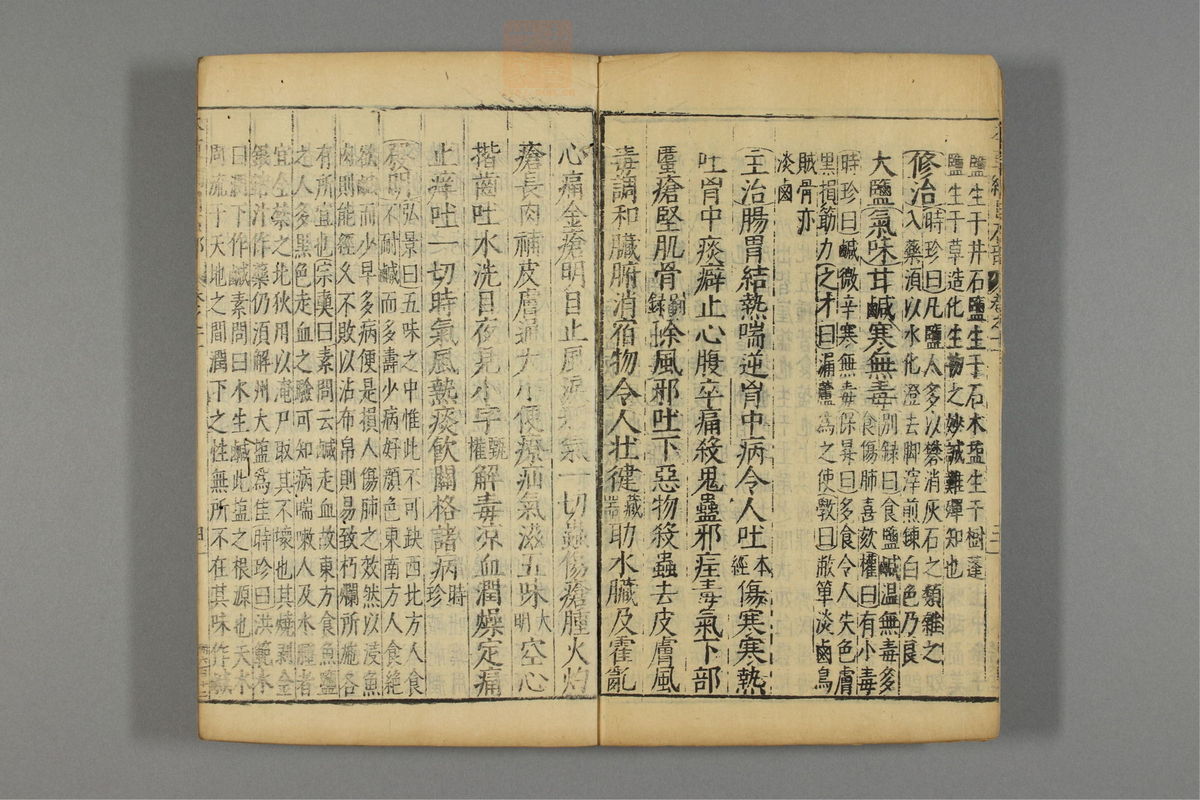 鹽生于井石鹽生于石木鹽生于樹蓬
鹽生于草造化生物之妙誠難殫知也
修治時珍曰凡鹽人多以礬消灰石之類雜之
入藥須以水化澄去脚滓煎鍊白色乃良
大鹽氣味甘鹹寒無毒别録曰食鹽鹹温無毒多
食傷肺喜欬權曰有小毒
時珍曰鹹微辛寒無毒保昇曰多食令人失色膚
黒損筋力之才曰漏蘆爲之使斆曰敝箄淡鹵鳥
賊骨亦
淡鹵
主治腸胃結熱喘逆胷中病令人吐本經傷寒寒熱
吐胷中痰癖止心腹卒痛殺鬼蠱邪疰毒氣下部
䘌瘡堅肌骨别録除風邪吐下惡物殺蟲去皮膚風
毒調和臟腑消宿物令人壮健藏器助水臟及霍亂
心痛金瘡明目止風淚邪氣一切蟲傷瘡腫火灼
瘡長肉補皮膚通大小便療疝氣滋五味大明空心
揩齒吐水洗目夜見小字甄權解毒涼血潤燥定痛
止癢吐一切時氣風熱痰飲關格諸病時珍
發明弘景曰五味之中惟此不可缺西北方人食
不耐鹹而多壽少病好顔色東南方人食絶
欲鹹而少早多病便是損人傷肺之效然以浸魚
肉則能經久不敗以沾布帛則易致朽爛所施各
有所宜也宗奭曰素問云鹹走血故東方食魚鹽
之人多黑色走血之驗可知病喘嗽人及水腫者
宜全禁之北狄用以淹尸取其不壞也其燒剥金
銀鎔汁作藥仍須解州大鹽爲佳時珍曰洪範水
曰潤下作鹹素問曰水生鹹此鹽之根源也夫水
周流于天地之間潤下之性無所不在其味作鹹